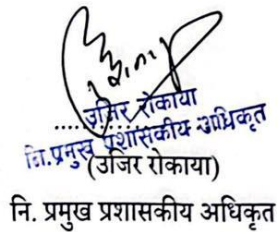 उजिर रोकाया
नि.प्रमुख प्रशासकीय अधिकृत
(उजिर रोकाया)
नि. प्रमुख प्रशासकीय अधिकृत